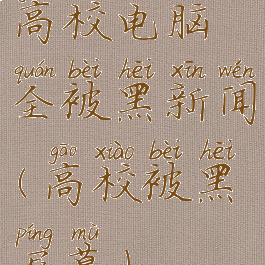 高校电脑
quán bèi hēi xīn wén
全被黑新闻
gāo xiào bèi hēi
(高校被黑
píng mù
屏幕)